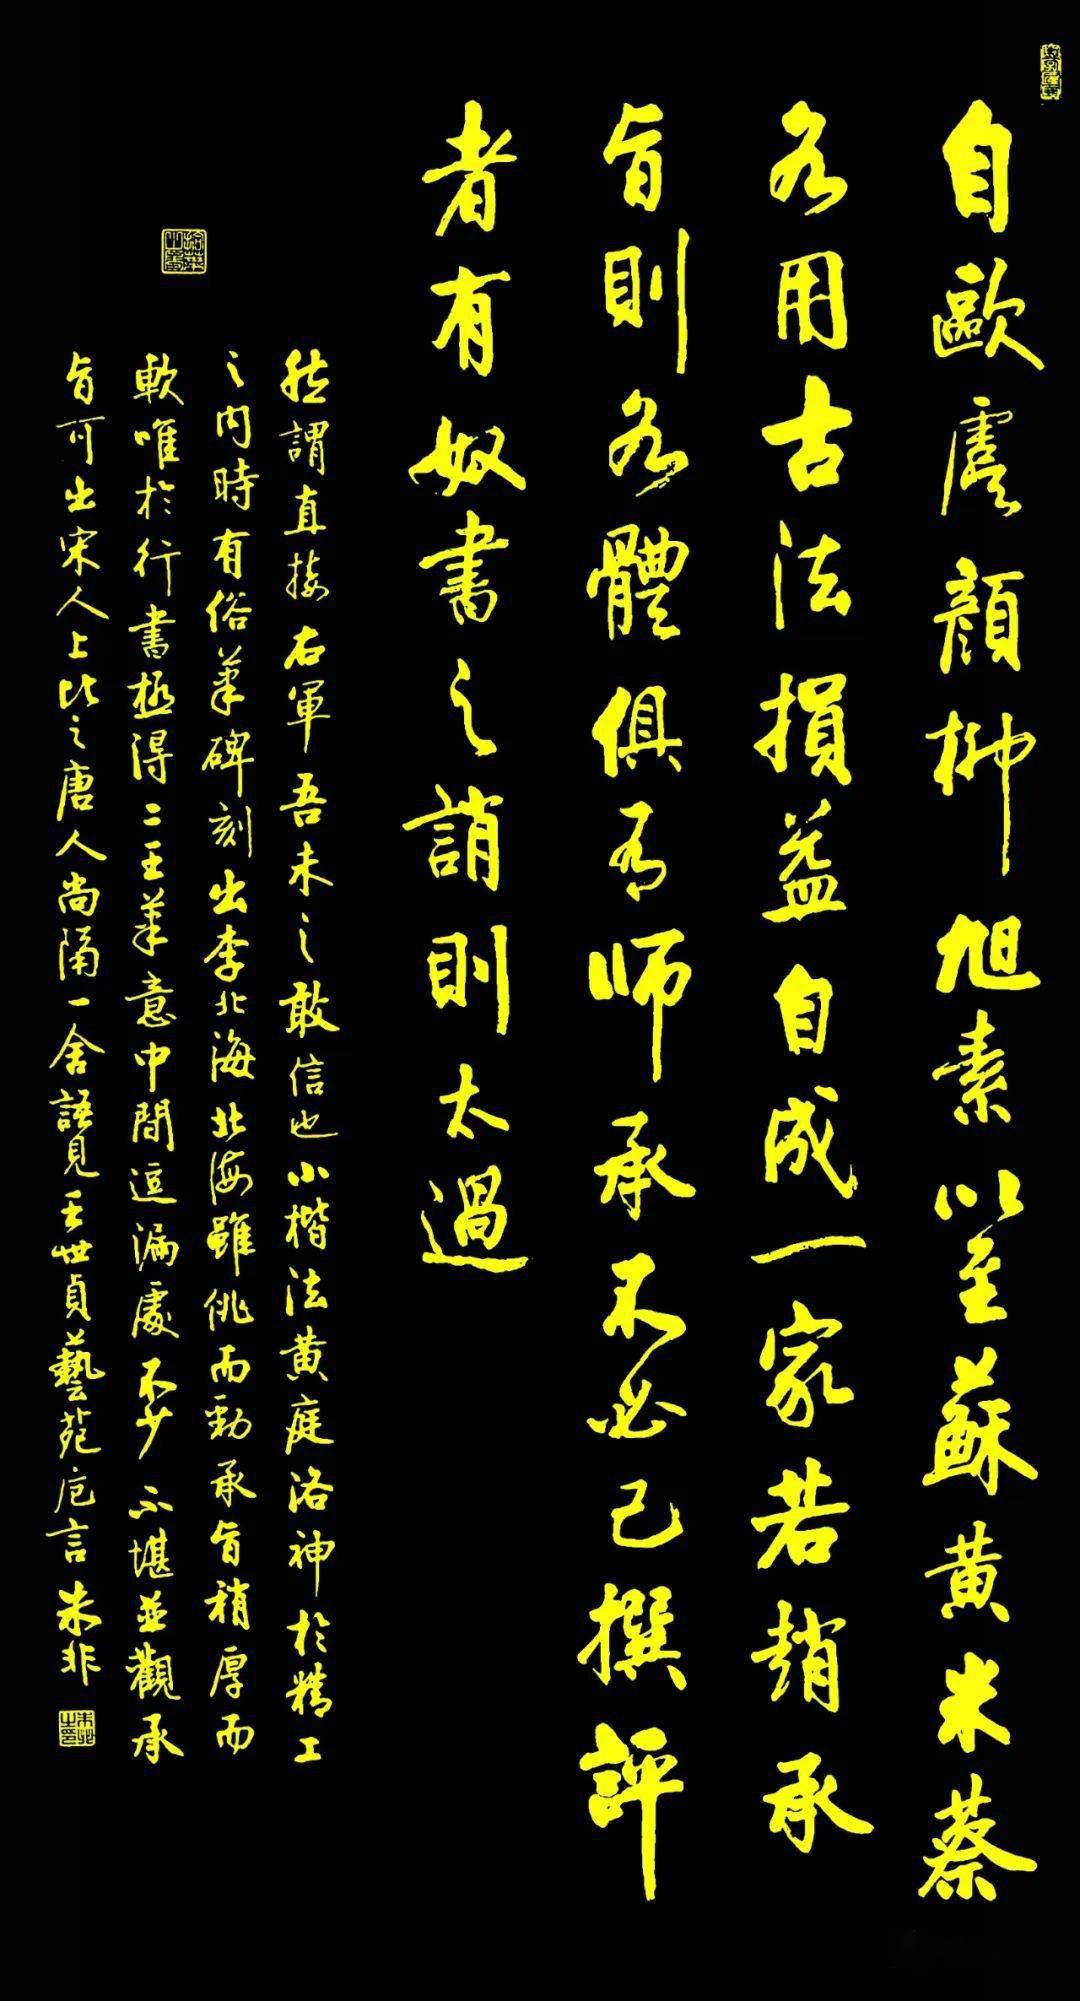 自歐虞顏柳旭素以至蘇黃米蔡
各用古法損益自成一家若趙承
旨則各體俱有師承不必己撰評
者有奴書之誚則太過
然謂直接右軍吾未之敢信也小楷法黃庭洛神於精工
之內時有俗筆碑刻出李北海北海雖佻而勁承旨稍厚而
軟唯於行書極得二王筆意中間逗漏處不少不堪並觀承
旨可出宋人上比之唐人尚隔一舍語見王世貞藝苑卮言朱非